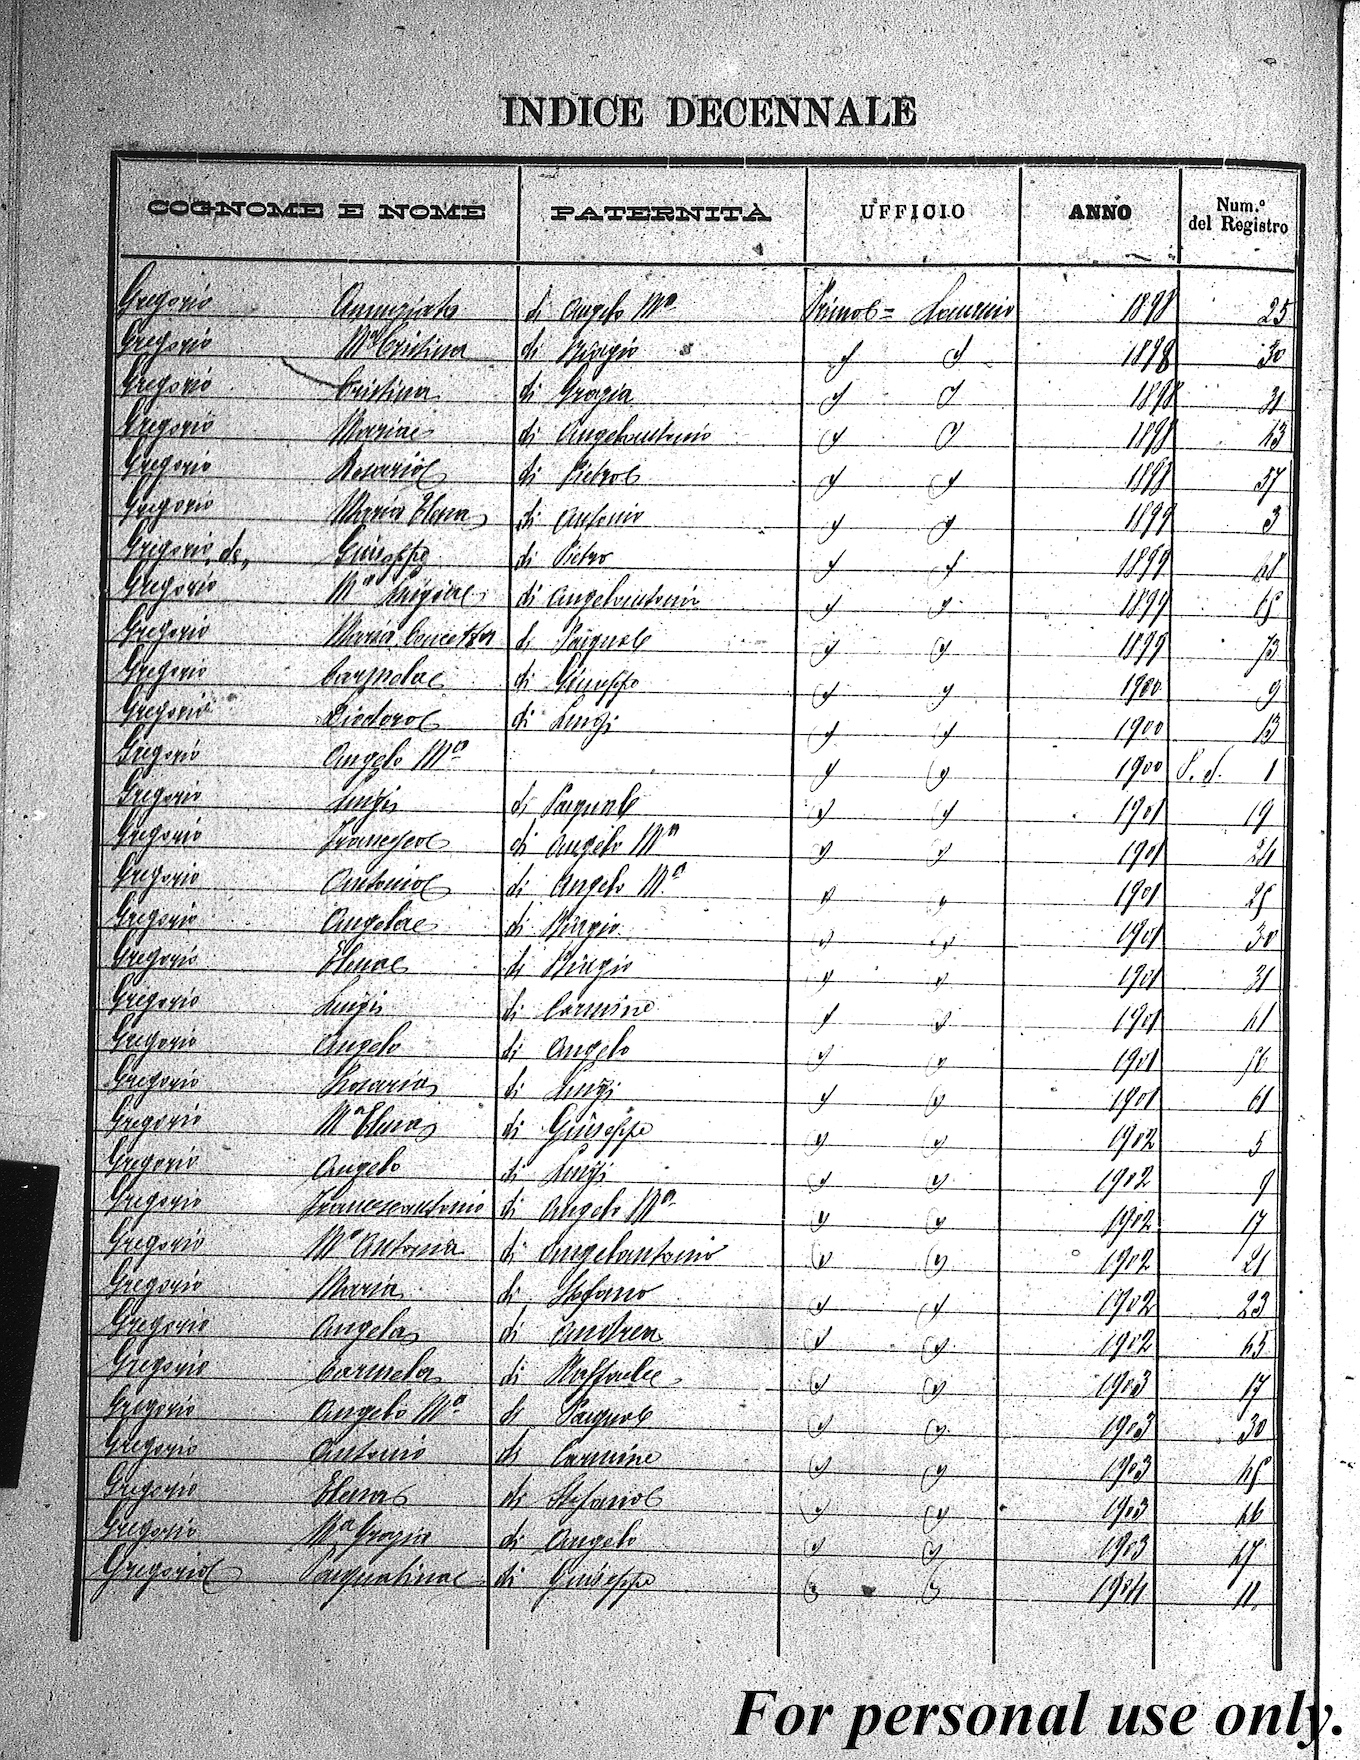 INDICE DECENNALE
COGNOME E NOME PATERNITÀ UFFICIO ANNO Num.° del Registro
Gregorio Annunziata di Angelo Mª 1898 25
Gregorio Mª Cristina di Biagio " " 1898 30
Gregorio Cristina di Grazia " " 1898 31
Gregorio Maria di Angelantonio " " 1898 43
Gregorio Rosario di Pietro " " 1898 57
Gregorio Maria Elena di Antonio " " 1899 3
Gregorio, de, Giuseppe di Pietro " " 1899
Gregorio Mª Luigia di Angelantonio " " 1899
Gregorio Maria Concetta di Pasquale " " 1899 73
Gregorio Carmela di Giuseppe " " 1900 9
Gregorio Diodoro di Luigi " " 1900 13
Gregorio Angelo Mª " " 1900 1
Gregorio Luigi di Pasquale " " 1901 19
Gregorio Francesco di Angelo Mª " " 1901 24
Gregorio Antonio di Angelo Mª " " 1901 25
Gregorio Angela di Biagio " " 1901 30
Gregorio Elena di Biagio " " 1901 31
Gregorio Luigi di Carmine " " 1901 41
Gregorio Angelo di Angelo " " 1901 56
Gregorio Rosaria di Luigi " " 1901 61
Gregorio Mª Elena di Giuseppe " " 1902 5
Gregorio Angelo di Luigi " " 1902 9
Gregorio Francescantonio di Angelo Mª " " 1902 17
Gregorio Mª Antonia di Angelantonio " " 1902 21
Gregorio Maria di Stefano " " 1902 23
Gregorio Angela di Andrea " " 1902 45
Gregorio Carmela di Raffaele " " 1903 17
Gregorio Angelo Mª di Pasquale " " 1903 30
Gregorio Antonio di Carmine " " 1903 45
Gregorio Elena di Stefano " " 1903 46
Gregorio Mª Grazia di Angelo " " 1903 47
Gregorio Pasqualina di Giuseppe " " 1904 11
For personal use only.